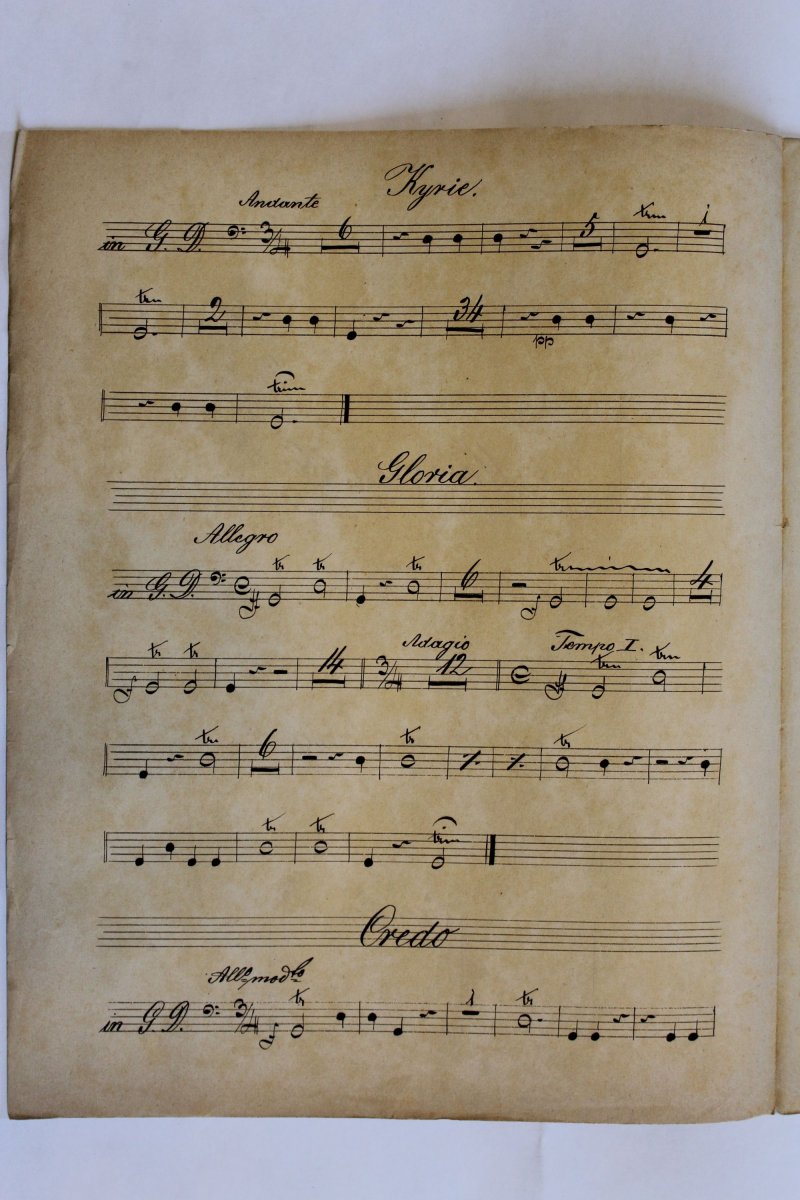 Kyrie.
Andante
in G. D. 3/4 6 5 tr 1
tr 2 34 pp
tr
Gloria.
Allegro
in G. D. tr tr tr 6 tr 4
tr tr 14 Adagio 3/4 12 Tempo I. tr tr
tr 6 tr tr
tr tr tr
Credo
Allo modto
in G. D. 3/4 tr 1 tr